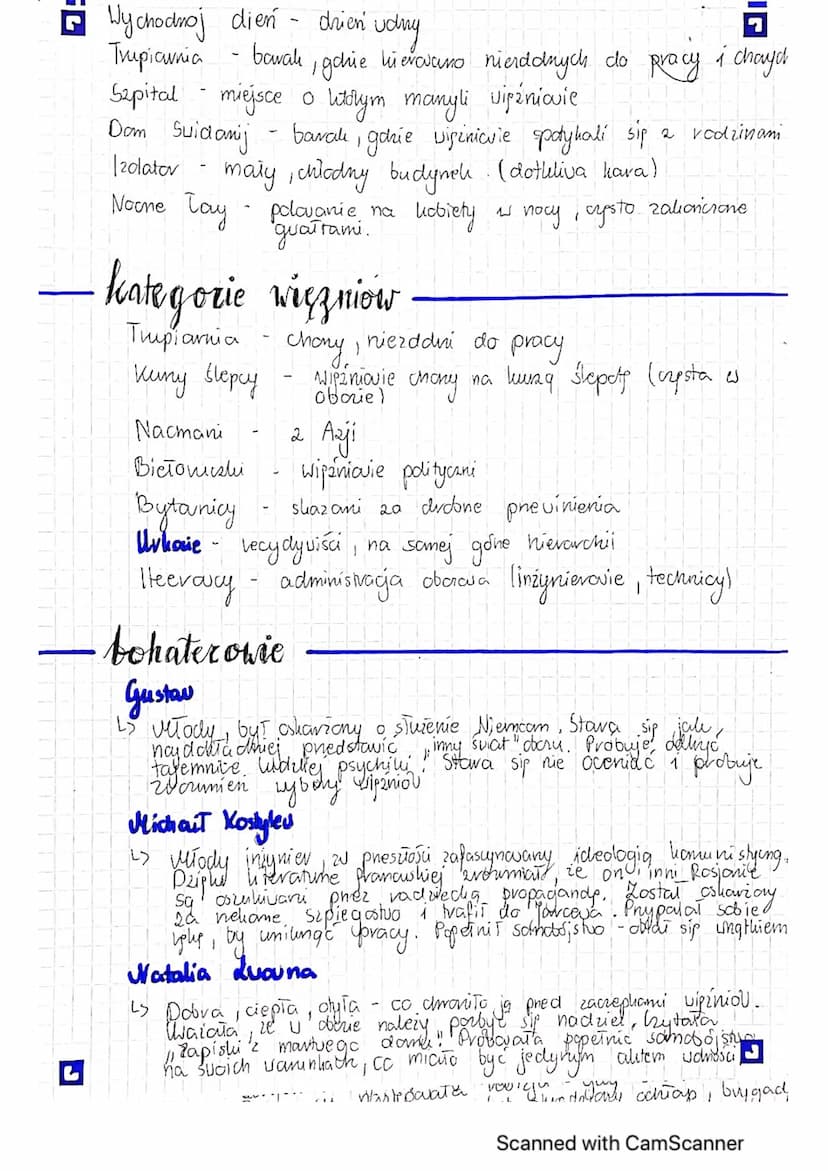 Wychodnoj dień - dzień wolny
Trupiarnia - barak, gdzie kierowano niezdolnych do pracy i chorych
Szpital - miejsce o którym marzyli więźniowie
Dom Swidanij - barak, gdzie więźniowie spotykali się z rodzinami
Izolator - mały, chłodny budynek. (dotkliwa kara)
Nocne Łowy - polowanie na kobiety w nocy, często zakończone
gwałtami.
kategorie więźniów
Trupiarnia - chorzy, niezdolni do pracy
Kurzy ślepcy - więźniowie chorzy na kurzą ślepotę (częsta w
obozie)
Nacmani - z Azji
Biełoruczki - więźniowie polityczni
Bytowicy - skazani za drobne przewinienia
Urkowie - recydywiści, na samej górze hierarchii
Iteerowcy - administracja obozowa (inżynierowie, technicy)
bohaterowie
Gustaw
↳ Młody, był oskarżony o służenie Niemcom. Stara się jak
najdokładniej przedstawić "inny świat" obozu. Próbuje odkryć
tajemnice ludzkiej psychiki. Stara się nie oceniać i próbuje
zrozumieć wybory więźniów
Michaił Kostylew
↳ Młody inżynier, w przeszłości zafascynowany ideologią komunistyczną.
Dzięki literaturze francuskiej zrozumiał, że on i inni Rosjanie
są oszukiwani przez radziecką propagandę. Został oskarżony
za rzekome szpiegostwo i trafił do Jarcewa. Przypalał sobie
rękę, by uniknąć pracy. Popełnił samobójstwo - oblał się wrzątkiem
Natalia Lwowna
↳ Dobra, ciepła, otyła - co chroniło ją przed zaczepkami więźniów.
Uważała, że w obozie należy pozbyć się nadziei, czytała
"Zapiski z martwego domu". Próbowała popełnić samobójstwo
na swoich warunkach, co miało być jedynym aktem wolności
ochłap, brygad
Scanned with CamScanner